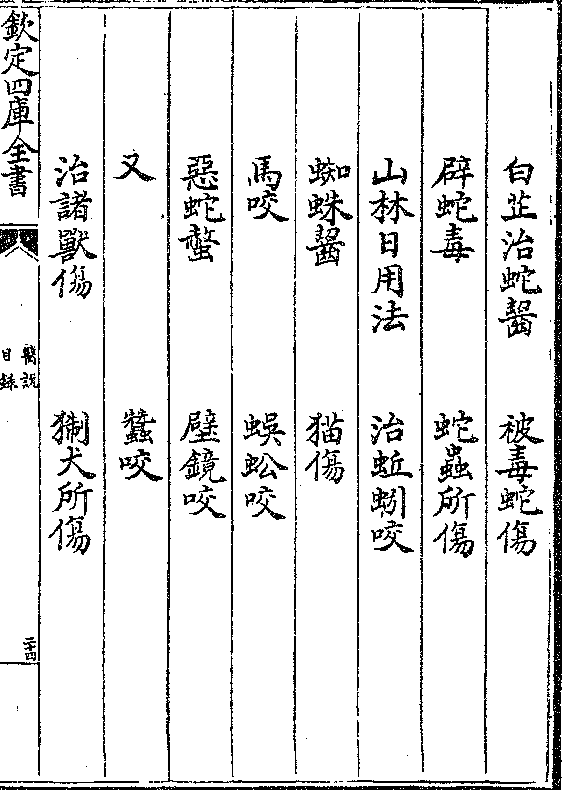 白芷治蛇齧　被毒蛇傷
辟蛇毒　蛇蟲所傷
山林日用法　治蚯蚓咬
蜘蛛齧　猫傷
馬咬　蜈蚣咬
惡蛇螫　壁鏡咬
又　蠶咬
治諸獸傷　猘犬所傷
欽定四庫全書
醫説
目録
二十四